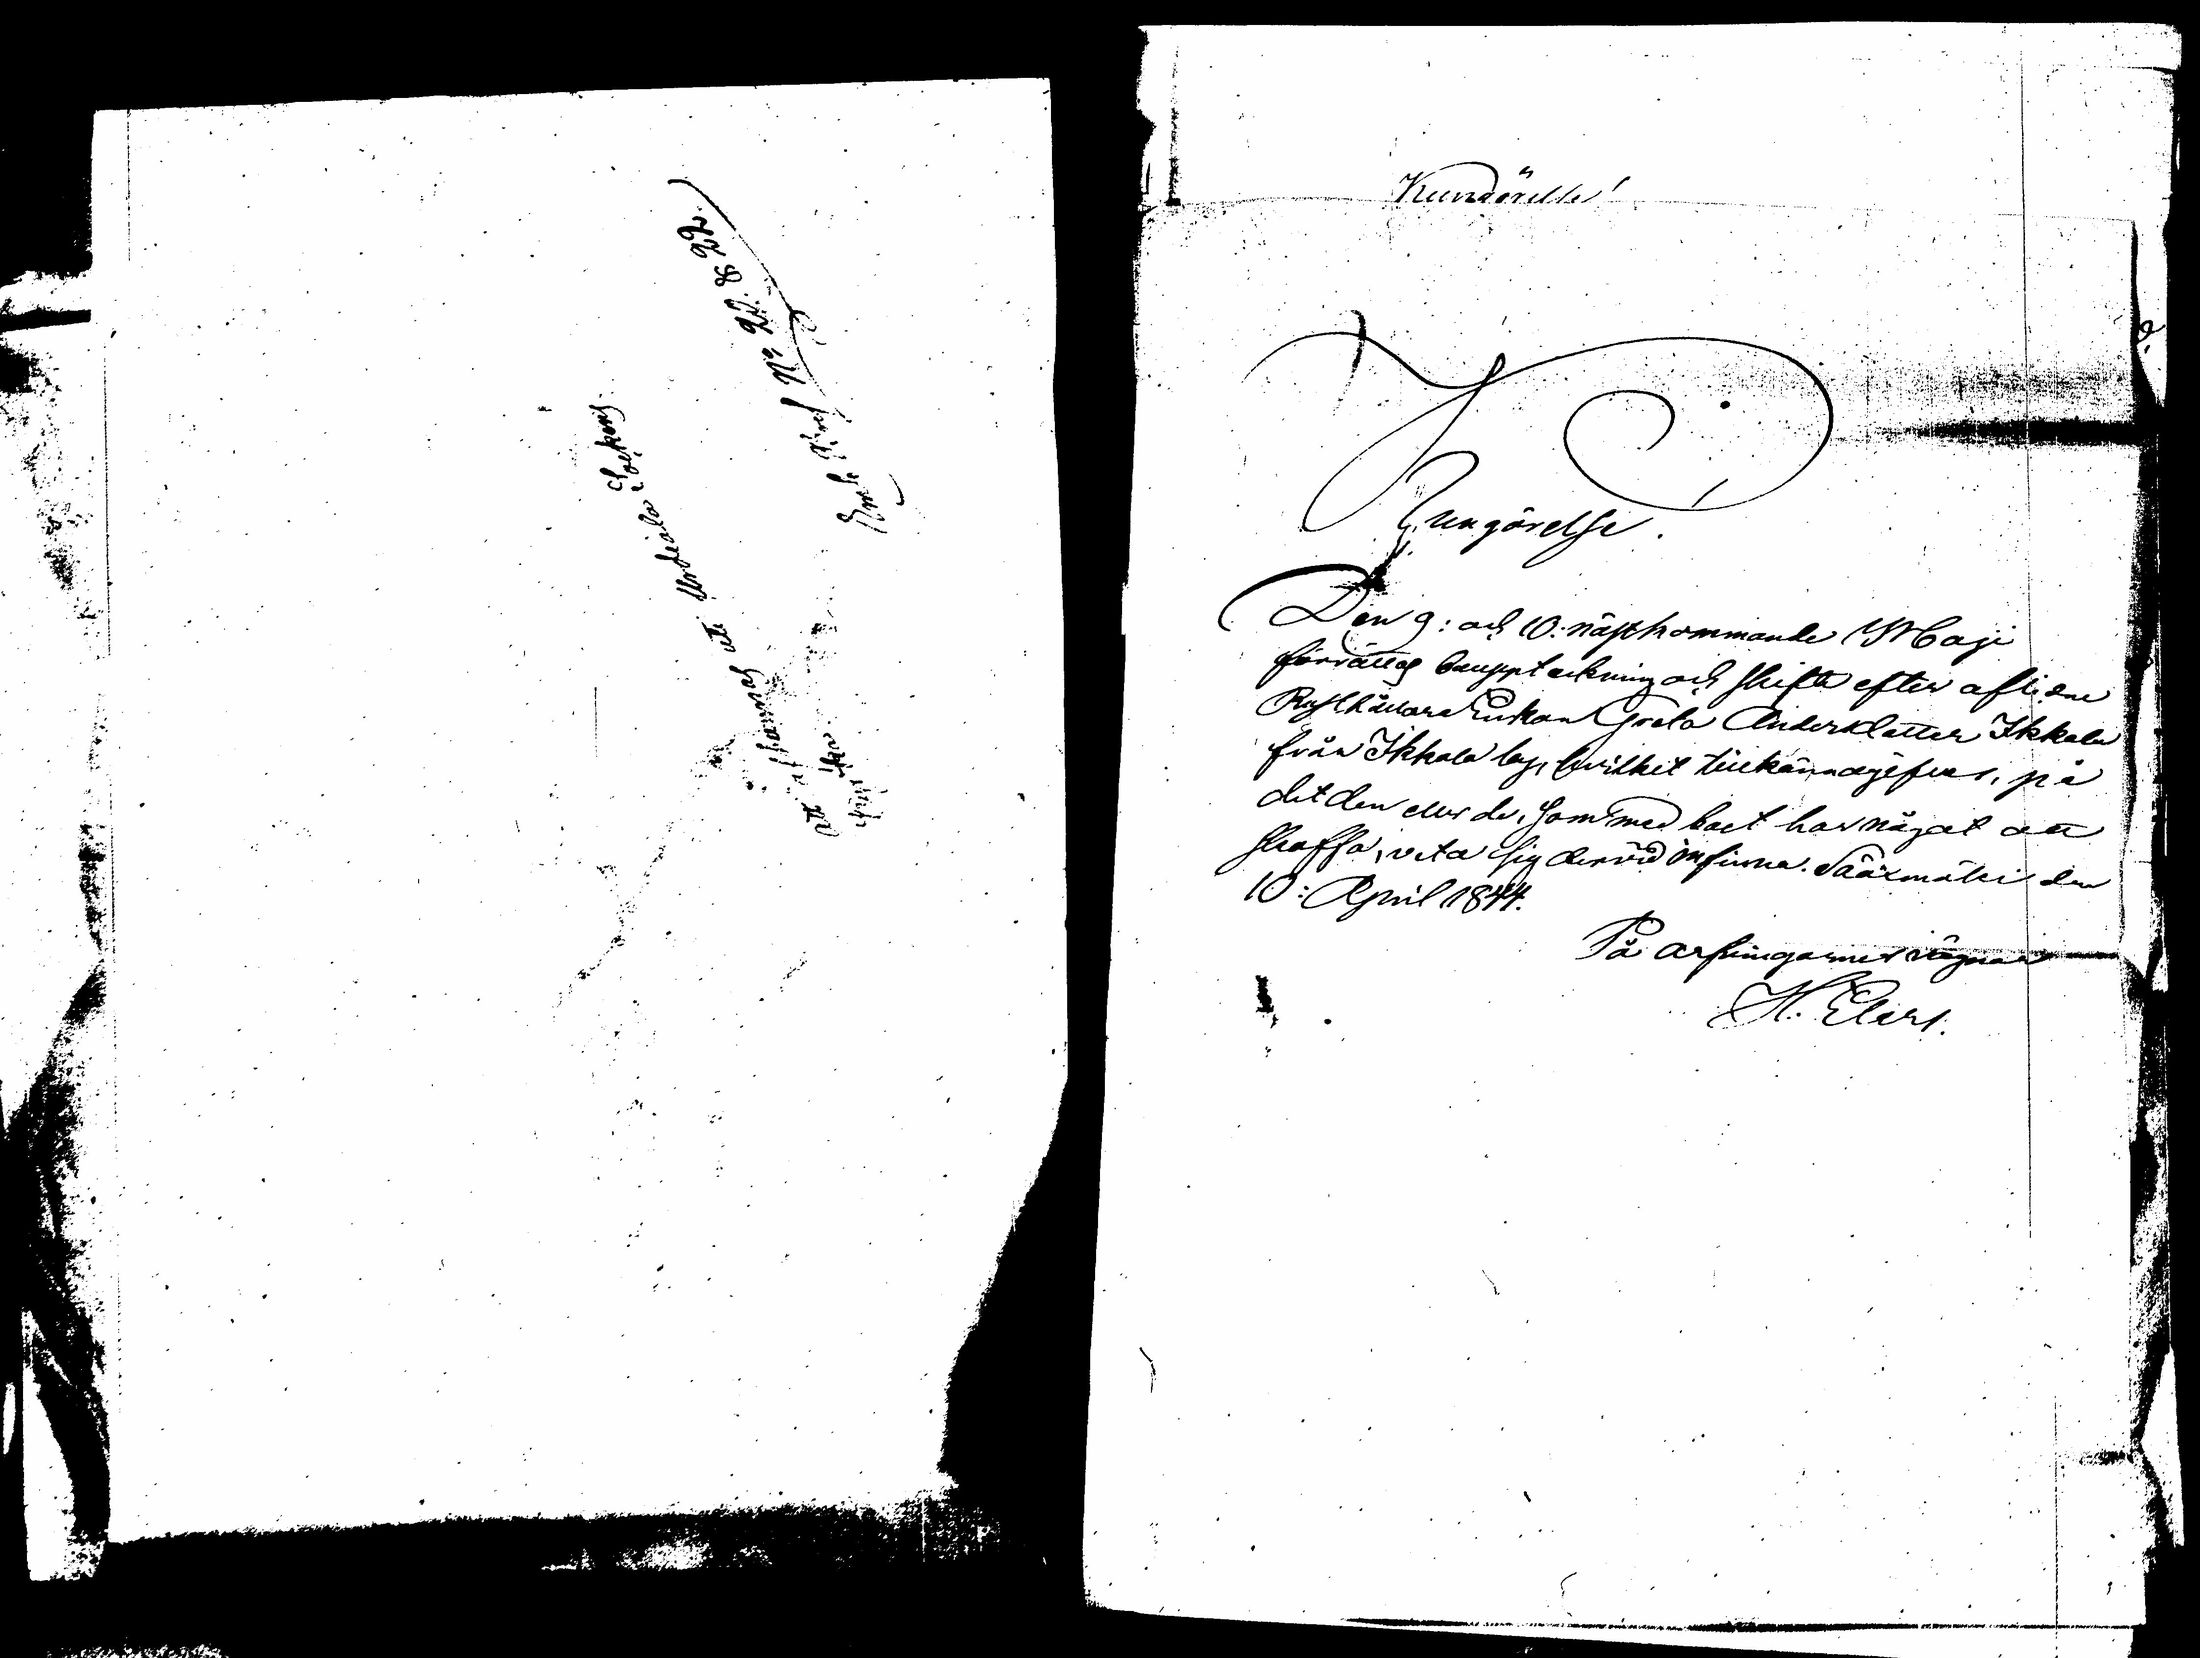 Urdiala Sockens
Enl. Prof No 21. & 22.
Kundörelse!
Kungörelse.
Den 9: och 10. nästkommande Maji
förrättas bouppteckning och skifte efter aflidne
Rusthållare Enkan Greta Andersdotter Ikkala
från Ikkala by, hvilket tillkännagifves, på
det den eller de, som med boet har något att
skaffa, veta sig dervid infinna. Sääxmäki den
10: April 1844.
På arfvingarnes vägnar
H. Elers.